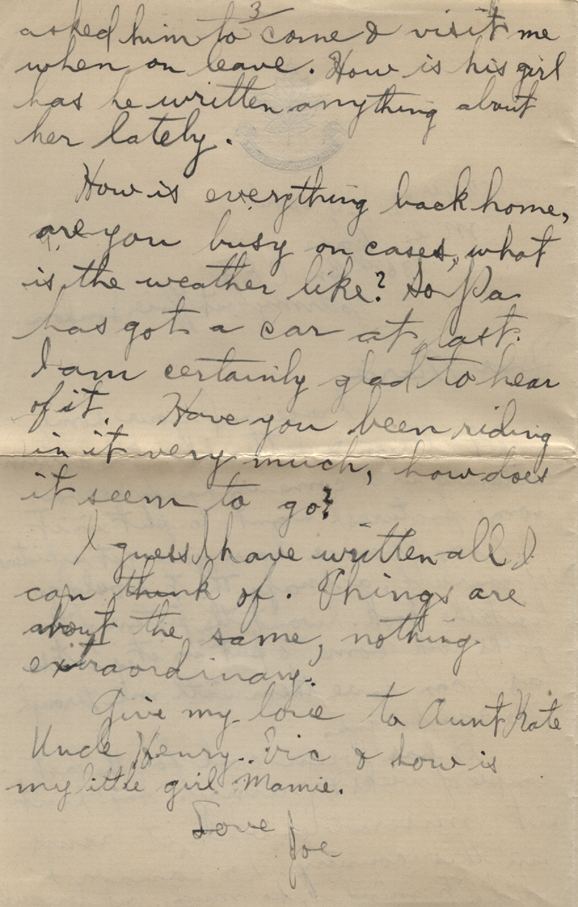 3
asked him to come & visit me
when on leave. How is his girl
has he written anything about
her lately.
How is everything back home,
are you busy on cases, what
is the weather like? So Pa
has got a car at last.
I am certainly glad to hear
of it. Have you been riding
in it very much, how does
it seem to go?
I guess I have written all I
can think of. Things are
about the same, nothing
extraordinary.
Give my love to Aunt Kate
Uncle Henry. Vic & how is
my little girl Mamie.
Love
Joe